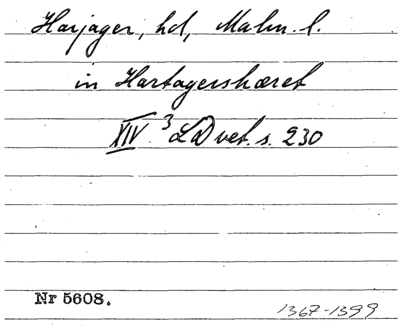 Harjager, hd, Malm. l.
in Hartagershæret
XIV 3 LDvet. s. 230
Nr 5608.
1367-1399